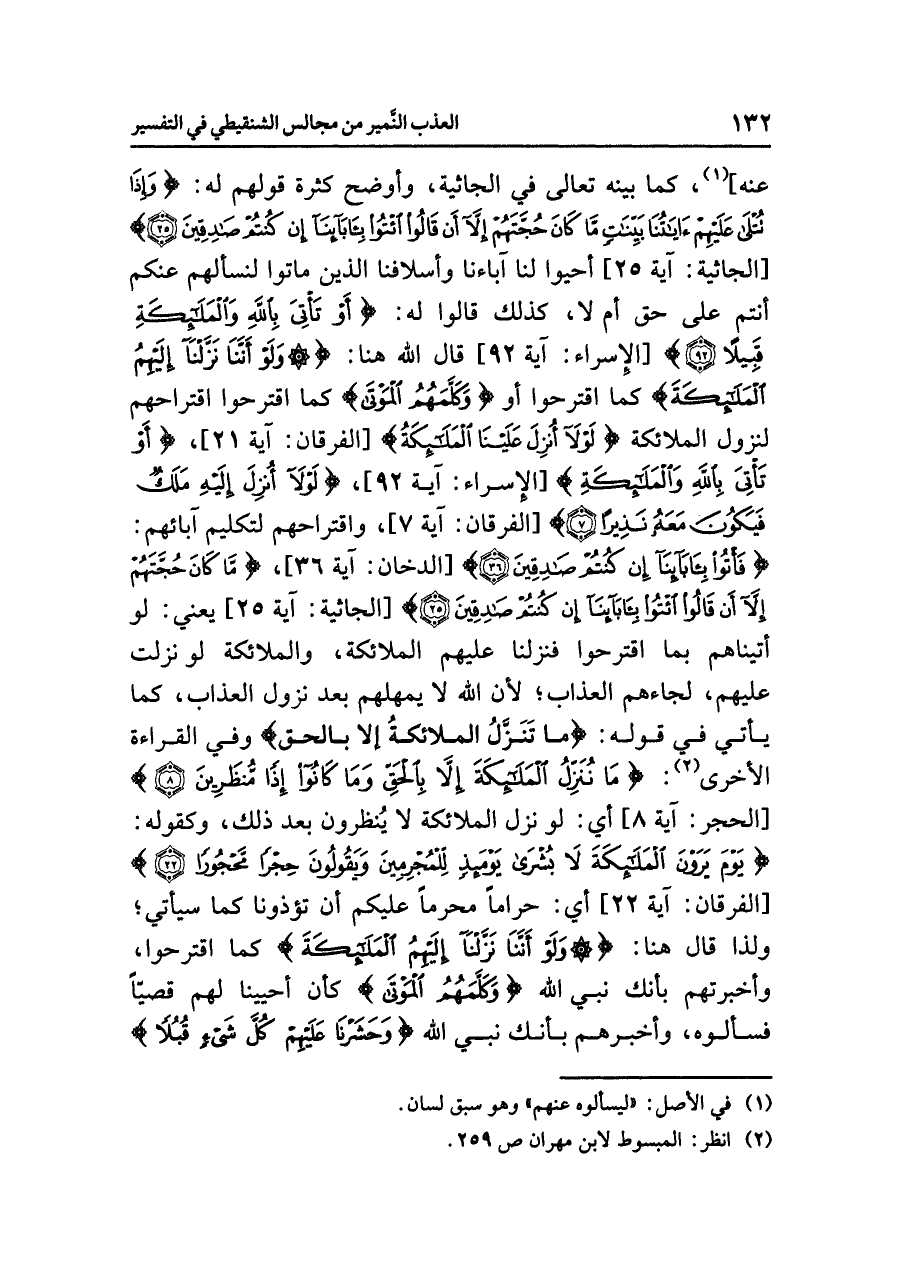 ١٣٢ العذب النَّمير من مجالس الشنقيطي في التفسير
عنه](١)، كما بينه تعالى في الجاثية، وأوضح كثرة قولهم له: ﴿ وَإِذَا
تُتْلَىٰ عَلَيْهِمْ ءَايَٰتُنَا بَيِّنَٰتٍ مَّا كَانَ حُجَّتَهُمْ إِلَّآ أَن قَالُوا۟ ٱئْتُوا۟ بِـَٔابَآئِنَآ إِن كُنتُمْ صَٰدِقِينَ ۝٢٥﴾
[الجاثية: آية ٢٥] أحيوا لنا آباءنا وأسلافنا الذين ماتوا لنسألهم عنكم
أنتم على حق أم لا، كذلك قالوا له: ﴿ أَوْ تَأْتِىَ بِٱللَّهِ وَٱلْمَلَٰٓئِكَةِ
قَبِيلًا ۝٩٢﴾ [الإسراء: آية ٩٢] قال الله هنا: ﴿ ۞ وَلَوْ أَنَّنَا نَزَّلْنَآ إِلَيْهِمُ
ٱلْمَلَٰٓئِكَةَ﴾ كما اقترحوا أو ﴿ وَكَلَّمَهُمُ ٱلْمَوْتَىٰ﴾ كما اقترحوا اقتراحهم
لنزول الملائكة ﴿ لَوْلَآ أُنزِلَ عَلَيْنَا ٱلْمَلَٰٓئِكَةُ﴾ [الفرقان: آية ٢١]، ﴿ أَوْ
تَأْتِىَ بِٱللَّهِ وَٱلْمَلَٰٓئِكَةِ ﴾ [الإسراء: آية ٩٢]، ﴿ لَوْلَآ أُنزِلَ إِلَيْهِ مَلَكٌ
فَيَكُونَ مَعَهُۥ نَذِيرًا ۝٧﴾ [الفرقان: آية ٧]، واقتراحهم لتكليم آبائهم:
﴿ فَأْتُوا۟ بِـَٔابَآئِنَآ إِن كُنتُمْ صَٰدِقِينَ ۝٣٦﴾ [الدخان: آية ٣٦]، ﴿ مَّا كَانَ حُجَّتَهُمْ
إِلَّآ أَن قَالُوا۟ ٱئْتُوا۟ بِـَٔابَآئِنَآ إِن كُنتُمْ صَٰدِقِينَ ۝٢٥﴾ [الجاثية: آية ٢٥] يعني: لو
أتيناهم بما اقترحوا فنزلنا عليهم الملائكة، والملائكة لو نزلت
عليهم، لجاءهم العذاب؛ لأن الله لا يمهلهم بعد نزول العذاب، كما
يأتي في قوله: ﴿ما تَنَزَّلُ الملائكةُ إلا بالحق﴾ وفي القراءة
الأخرى(٢): ﴿ مَا نُنَزِّلُ ٱلْمَلَٰٓئِكَةَ إِلَّا بِٱلْحَقِّ وَمَا كَانُوٓا۟ إِذًا مُّنظَرِينَ ۝٨ ﴾
[الحجر: آية ٨] أي: لو نزل الملائكة لا يُنظرون بعد ذلك، وكقوله:
﴿ يَوْمَ يَرَوْنَ ٱلْمَلَٰٓئِكَةَ لَا بُشْرَىٰ يَوْمَئِذٍ لِّلْمُجْرِمِينَ وَيَقُولُونَ حِجْرًا مَّحْجُورًا ۝٢٢ ﴾
[الفرقان: آية ٢٢] أي: حراماً محرماً عليكم أن تؤذونا كما سيأتي؛
ولذا قال هنا: ﴿ ۞ وَلَوْ أَنَّنَا نَزَّلْنَآ إِلَيْهِمُ ٱلْمَلَٰٓئِكَةَ ﴾ كما اقترحوا،
وأخبرتهم بأنك نبي الله ﴿ وَكَلَّمَهُمُ ٱلْمَوْتَىٰ ﴾ كأن أحيينا لهم قصيّاً
فسألوه، وأخبرهم بأنك نبي الله ﴿ وَحَشَرْنَا عَلَيْهِمْ كُلَّ شَىْءٍ قُبُلًا ﴾
(١) في الأصل: «ليسألوه عنهم» وهو سبق لسان.
(٢) انظر: المبسوط لابن مهران ص ٢٥٩.